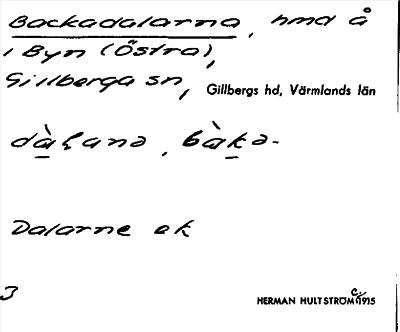 Backadalarna, hmd å
i Byn (Östra),
Gillberga sn,
Gillbergs hd, Värmlands län
dà̱ɽanə, bà̱kə-
Dalarne ek
3
HERMAN HULTSTRÖM C. 1915